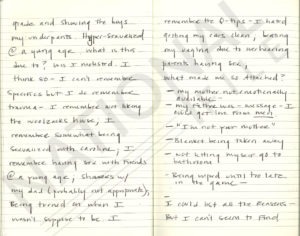 grade and showing the boys
my underpants. Hyper-sexualized
@ a young age. what is this
due to? Was I molested. I
think so - I can't remember
specifics but I do remember
trauma - I remember not liking
the house; I
remember somewhat being
sexualized with Caroline; I
remember having sex with friends
@ a young age; showers w/
my dad (probably not appropriate).
Being turned on when I
wasn't suppose to be. I
remember the Q-tips - I hated
getting my ears clean,
my due to overhearing
parents having sex,
What made me so attached?
- my mother not emotionally
available -
- my father was - message - I
could get love from men
- "I'm not your mother"
- Blanket being taken away
- not letting myself go to
bathroom
- Being wiped until the late
in the game -
-
I could list all the reasons -
But I can't seem to find